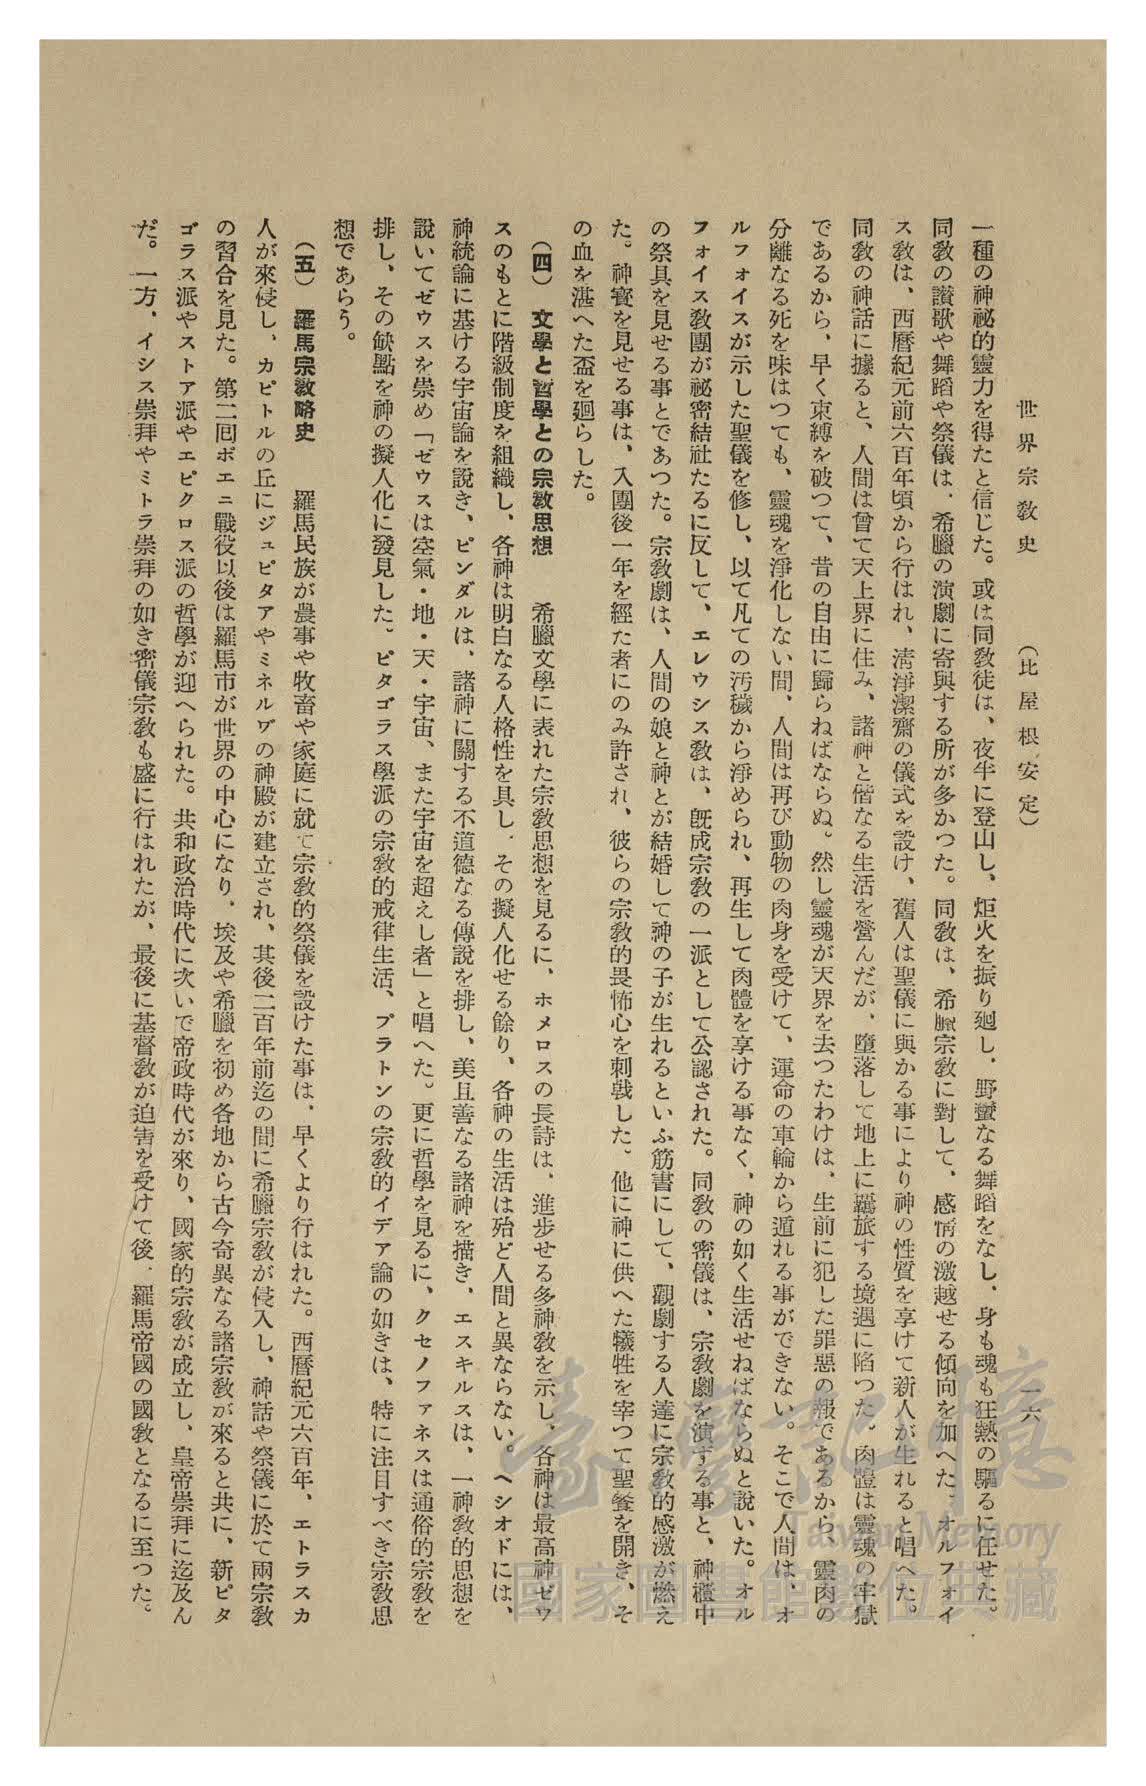 世界宗教史　（比屋根安定）　一六
一種の神祕的靈力を得たと信じた。或は同教徒は、夜半に登山し、炬火を振り廻し、野蠻なる舞蹈をなし、身も魂も狂熱の驅るに任せた。
同教の讃歌や舞蹈や祭儀は、希臘の演劇に寄與する所が多かつた。同教は、希臘宗教に對して、感情の激越せる傾向を加へた。オルフォイ
ス教は、西曆紀元前六百年頃から行はれ、淸淨潔齋の儀式を設け、舊人は聖儀に與かる事により神の性質を享けて新人が生れると唱へた。
同教の神話に據ると、人間は曾て天上界に住み、諸神と偕なる生活を營んだが、墮落して地上に羈旅する境遇に陷つた。肉體は靈魂の牢獄
であるから、早く束縛を破つて、昔の自由に歸らねばならぬ。然し靈魂が天界を去つたわけは、生前に犯した罪惡の報であるから、靈肉の
分離なる死を味はつても、靈魂を淨化しない間、人間は再び動物の肉身を受けて、運命の車輪から遁れる事ができない。そこで人間は、オ
ルフォイスが示した聖儀を修し、以て凡ての汚穢から淨められ、再生して肉體を享ける事なく、神の如く生活せねばならぬと說いた。オル
フォイス教團が祕密結社たるに反して、エレウシス教は、旣成宗教の一派として公認された。同教の密儀は、宗教劇を演ずる事と、神櫃中
の祭具を見せる事とであつた。宗教劇は、人間の娘と神とが結婚して神の子が生れるといふ筋書にして、觀劇する人達に宗教的感激が燃え
た。神寶を見せる事は、入團後一年を經た者にのみ許され、彼らの宗教的畏怖心を刺戟した。他に神に供へた犧牲を宰つて聖餐を開き、そ
の血を湛へた盃を廻らした。
（四）　文學と哲學との宗教思想　希臘文學に表れた宗教思想を見るに、ホメロスの長詩は、進步せる多神教を示し、各神は最高神ゼウ
スのもとに階級制度を組織し、各神は明白なる人格性を具し、その擬人化せる餘り、各神の生活は殆ど人間と異ならない。ヘシオドには、
神統論に基ける宇宙論を說き、ピンダルは、諸神に關する不道德なる傳說を排し、美且善なる諸神を描き、エスキルスは、一神教的思想を
說いてゼウスを崇め「ゼウスは空氣・地・天・宇宙、また宇宙を超えし者」と唱へた。更に哲學を見るに、クセノファネスは通俗的宗教を
排し、その缺點を神の擬人化に發見した。ピタゴラス學派の宗教的戒律生活、プラトンの宗教的イデア論の如きは、特に注目すべき宗教思
想であらう。
（五）　羅馬宗教略史　羅馬民族が農事や牧畜や家庭に就て宗教的祭儀を設けた事は、早くより行はれた。西曆紀元六百年、エトラスカ
人が來侵し、カピトルの丘にジュピタアやミネルヷの神殿が建立され、其後二百年前迄の間に希臘宗教が侵入し、神話や祭儀に於て兩宗教
の習合を見た。第二囘ポエニ戰役以後は羅馬市が世界の中心になり、埃及や希臘を初め各地から古今奇異なる諸宗教が來ると共に、新ピタ
ゴラス派やストア派やエピクロス派の哲學が迎へられた。共和政治時代に次いで帝政時代が來り、國家的宗教が成立し、皇帝崇拜に迄及ん
だ。一方、イシス崇拜やミトラ崇拜の如き密儀宗教も盛に行はれたが、最後に基督教が迫害を受けて後、羅馬帝國の國教となるに至つた。
臺灣記憶
Taiwan Memory
國家圖書館數位典藏